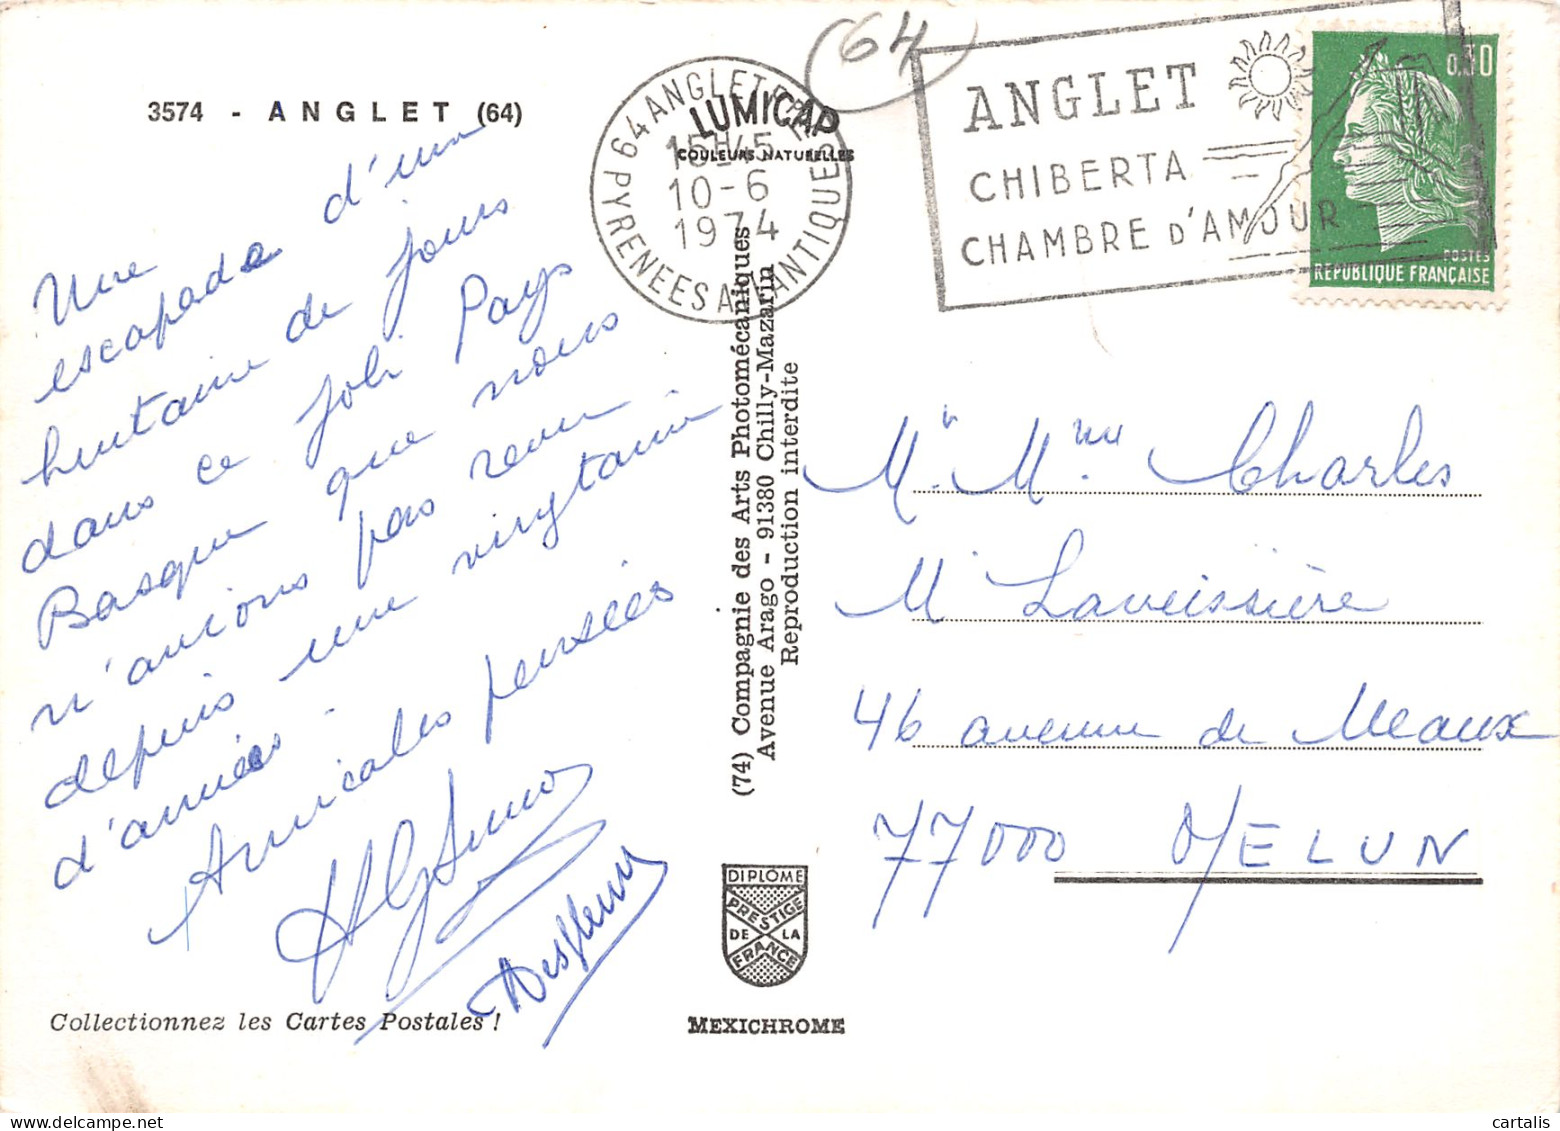 3574 - ANGLET (64)
Une escapade d'une
huitaine de jours
dans ce joli Pays
Basque que nous
n'avions pas revu
depuis une vingtaine
d'années.
Amicales pensées
Collectionnez les Cartes Postales !
64
LUMICAP
COULEURS NATURELLES
64 ANGLET
PYRENEES ATLANTIQUES
15H45
10-6
1974
ANGLET
CHIBERTA
CHAMBRE D'AMOUR
0,30
POSTES
REPUBLIQUE FRANÇAISE
(74) Compagnie des Arts Photomécaniques
Avenue Arago - 91380 Chilly-Mazarin
Reproduction interdite
DIPLOME
PRESTIGE
DE LA
FRANCE
MEXICHROME
Mr. Mme Charles
Laveissière
46 avenue de Meaux
77000 MELUN
cartalis